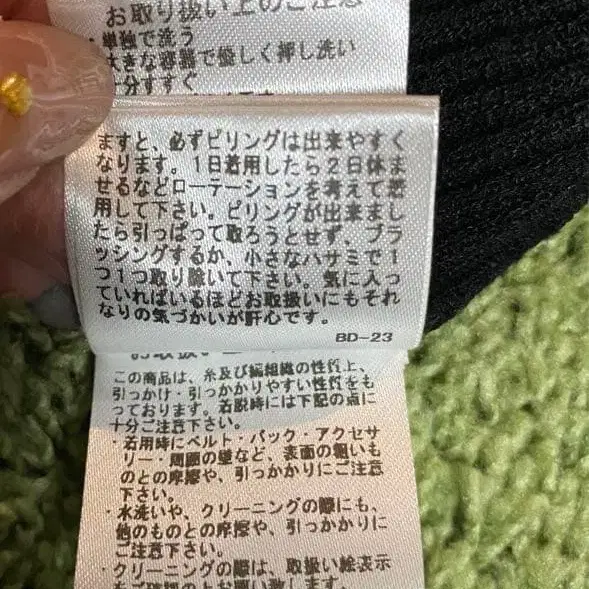 お取り扱い上のご注意
・単独で洗う
大きな容器で優しく押し洗い
十分すすぐ
ますと、必ずピリングは出来やすく
なります。1日着用したら2日休ま
せるなどローテーションを考えて着
用して下さい。ピリングが出来まし
たら引っぱって取ろうとせず、ブラ
ッシングするか、小さなハサミで1
つ1つ取り除いて下さい。気に入っ
ていればいるほどお取扱いにもそれ
なりの気づかいが肝心です。
BD-23
この商品は、糸及び編組織の性質上、
引っかけ・引っかかりやすい性質をも
っております。着脱時には下記の点に
十分ご注意下さい。
・着用時にベルト・バック・アクセサ
リー・周囲の壁など、表面の粗いも
のとの摩擦や、引っかかりにご注意
下さい。
・水洗いや、クリーニングの際にも、
他のものとの摩擦や、引っかかりに
ご注意下さい。
・クリーニングの際は、取扱い絵表示
をご確認の上お願い致します。